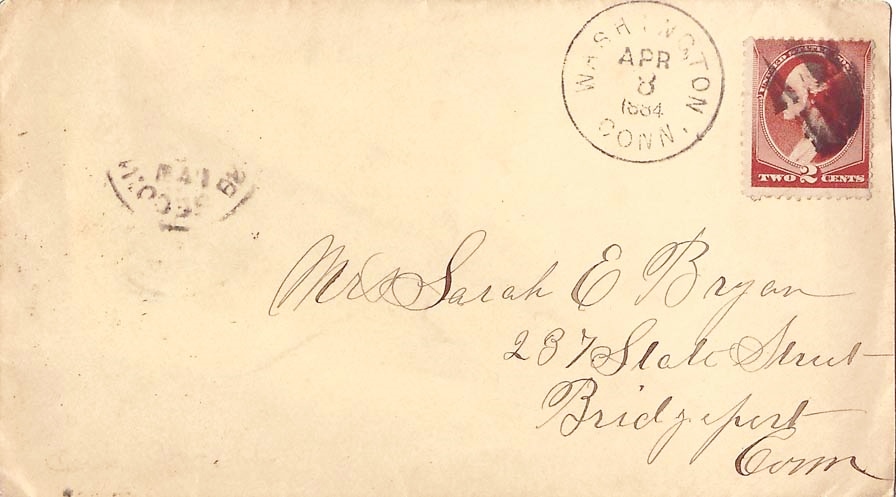 WASHINGTON,
APR
8
1884
CONN.
TWO 2 CENTS
Mrs Sarah E Bryan
237 State Street
Bridgeport
Conn